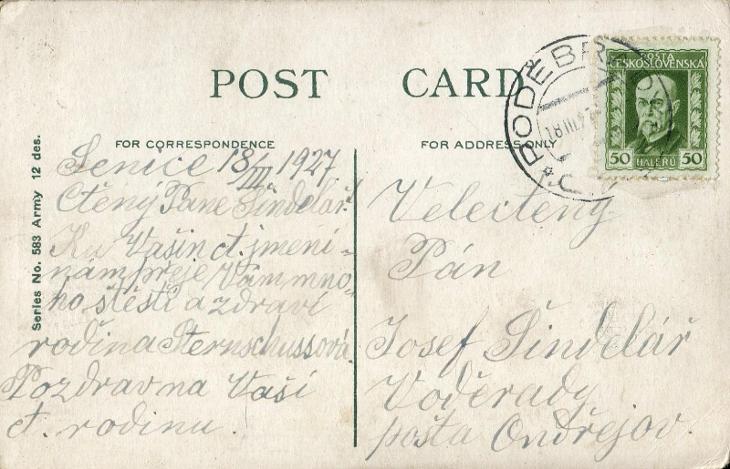 POST CARD
FOR CORRESPONDENCE
FOR ADDRESS ONLY
Series No. 583 Army 12 des.
Senice 18/III 1927.
Ctěný Pane Šindelář!
Ku Vašin ct. jmení-
nám přeje Vám mno-
ho štěstí a zdraví
rodina Sternschussová.
Pozdrav na Vaší
ct. rodinu.
PODĚBR
18 III 27
POŠTA
ČESKOSLOVENSKA
50 HALÉŘŮ 50
Velectěný
Pán
Josef Šindelář
Voděrady
pošta Ondřejov.